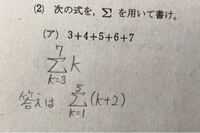 (2) 次の式を，Σ を用いて書け。
(ア) 3+4+5+6+7
7
Σ k
k=3
5
答えは Σ (k+2)
k=1